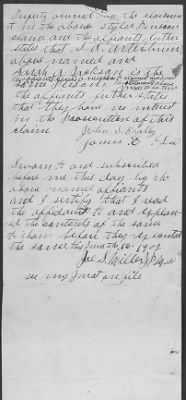 property owned by the claimant
in the above styled Pension
claim and the affiants further
states that S. A. Arterburn
above named and
Sarah A. Jackson is the
same Person
the affiants further states
that they have no interest
in the Prosecution of this
claim
John S.
James
Sworn to and subscribed
before me this day by the
above named affiants
and I certify that I read
the affidavit to and explain
ed the contents of the same
to them before they executed
the same this June the 10. 1909
Joe S. Miller J.P.
see my Jurat on file